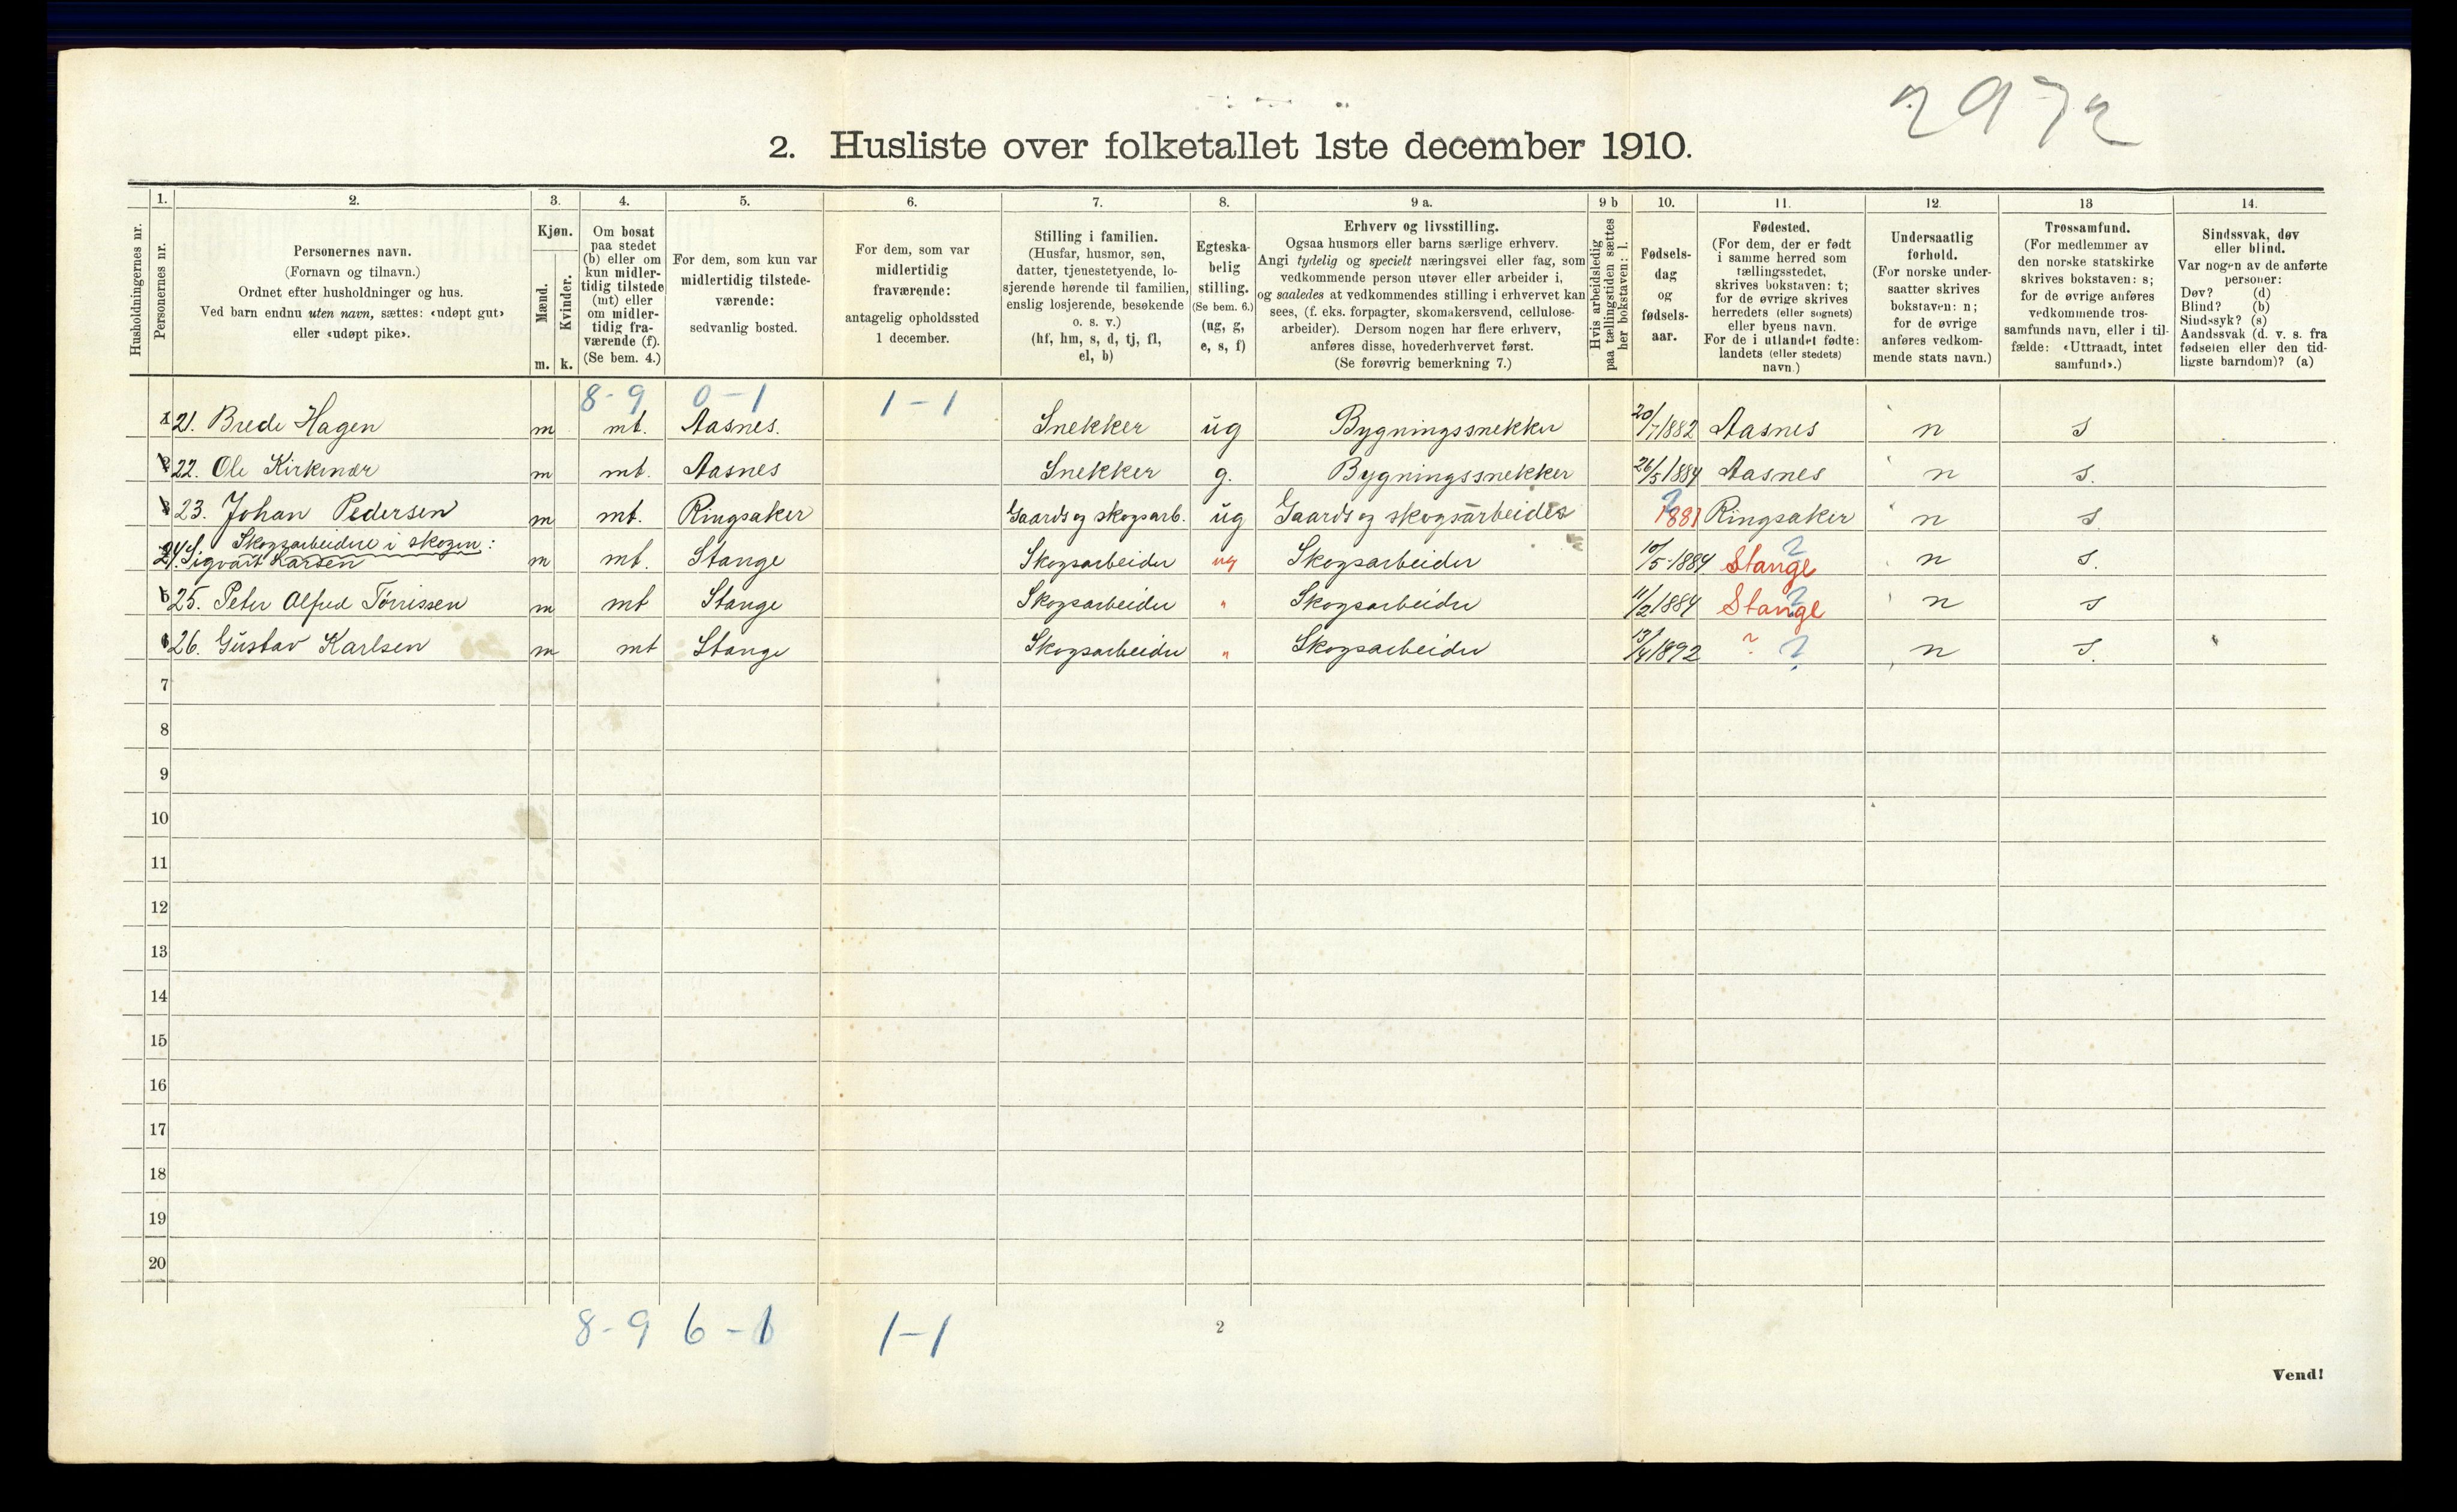 2972
2. Husliste over folketallet 1ste december 1910.
Husholdningernes nr.
1.
Personernes nr.
2.
Personernes navn.
(Fornavn og tilnavn.)
Ordnet efter husholdninger og hus.
Ved barn endnu uten navn, sættes: «udøpt gut»
eller «udøpt pike».
3.
Kjøn.
Mænd.
Kvinder.
m. k.
4.
Om bosat
paa stedet
(b) eller om
kun midler-
tidig tilstede
(mt) eller
om midler-
tidig fra-
værende (f).
(Se bem. 4.)
5.
For dem, som kun var
midlertidig tilstede-
værende:
sedvanlig bosted.
6.
For dem, som var
midlertidig
fraværende:
antagelig opholdssted
1 december.
7.
Stilling i familien.
(Husfar, husmor, søn,
datter, tjenestetyende, lo-
sjerende hørende til familien,
enslig losjerende, besøkende
o. s. v.)
(hf, hm, s, d, tj, fl,
el, b)
8.
Egteska-
belig
stilling.
(Se bem. 6.)
(ug, g,
e, s, f)
9 a.
Erhverv og livsstilling.
Ogsaa husmors eller barns særlige erhverv.
Angi tydelig og specielt næringsvei eller fag, som
vedkommende person utøver eller arbeider i,
og saaledes at vedkommendes stilling i erhvervet kan
sees, (f. eks. forpagter, skomakersvend, cellulose-
arbeider). Dersom nogen har flere erhverv,
anføres disse, hovederhvervet først.
(Se forøvrig bemerkning 7.)
9 b
Hvis arbeidsledig
paa tællingstiden sættes
her bokstaven: l.
10.
Fødsels-
dag
og
fødsels-
aar.
11.
Fødested.
(For dem, der er født
i samme herred som
tællingsstedet,
skrives bokstaven: t;
for de øvrige skrives
herredets (eller sognets)
eller byens navn.
For de i utlandet fødte:
landets (eller stedets)
navn.)
12.
Undersaatlig
forhold.
(For norske under-
saatter skrives
bokstaven: n;
for de øvrige
anføres vedkom-
mende stats navn.)
13
Trossamfund.
(For medlemmer av
den norske statskirke
skrives bokstaven: s;
for de øvrige anføres
vedkommende tros-
samfunds navn, eller i til-
fælde: «Uttraadt, intet
samfund».)
14.
Sindssvak, døv
eller blind.
Var nogen av de anførte
personer:
Døv? (d)
Blind? (b)
Sindssyk? (s)
Aandssvak (d. v. s. fra
fødselen eller den tid-
ligste barndom)? (a)
8-9 0-1 1-1
21. Brede Hagen m mt. Aasnes. Snekker ug Bygningssnekker 20/7 1882 Aasnes n s
22. Ole Kirkenær m mt. Aasnes Snekker g. Bygningssnekker 26/5 1884 Aasnes n s.
23. Johan Pedersen m mt. Ringsaker Gaards og skogsarb. ug Gaards og skogsarbeider ? 1881 Ringsaker n s.
Skogsarbeidere i skogen:
24. Sigvart Karsen m mt. Stange Skogsarbeider ug Skogsarbeider 10/5 1884 Stange ? n s.
25. Peter Alfred Tørrissen m mt Stange Skogsarbeider " Skogsarbeider 11/2 1884 Stange ? n s
26. Gustav Karlsen m mt Stange Skogsarbeider " Skogsarbeider 13/4 1892 ? ? n s.
7
8
9
10
11
12
13
14
15
16
17
18
19
20
8-9 6-1 1-1
2
Vend!